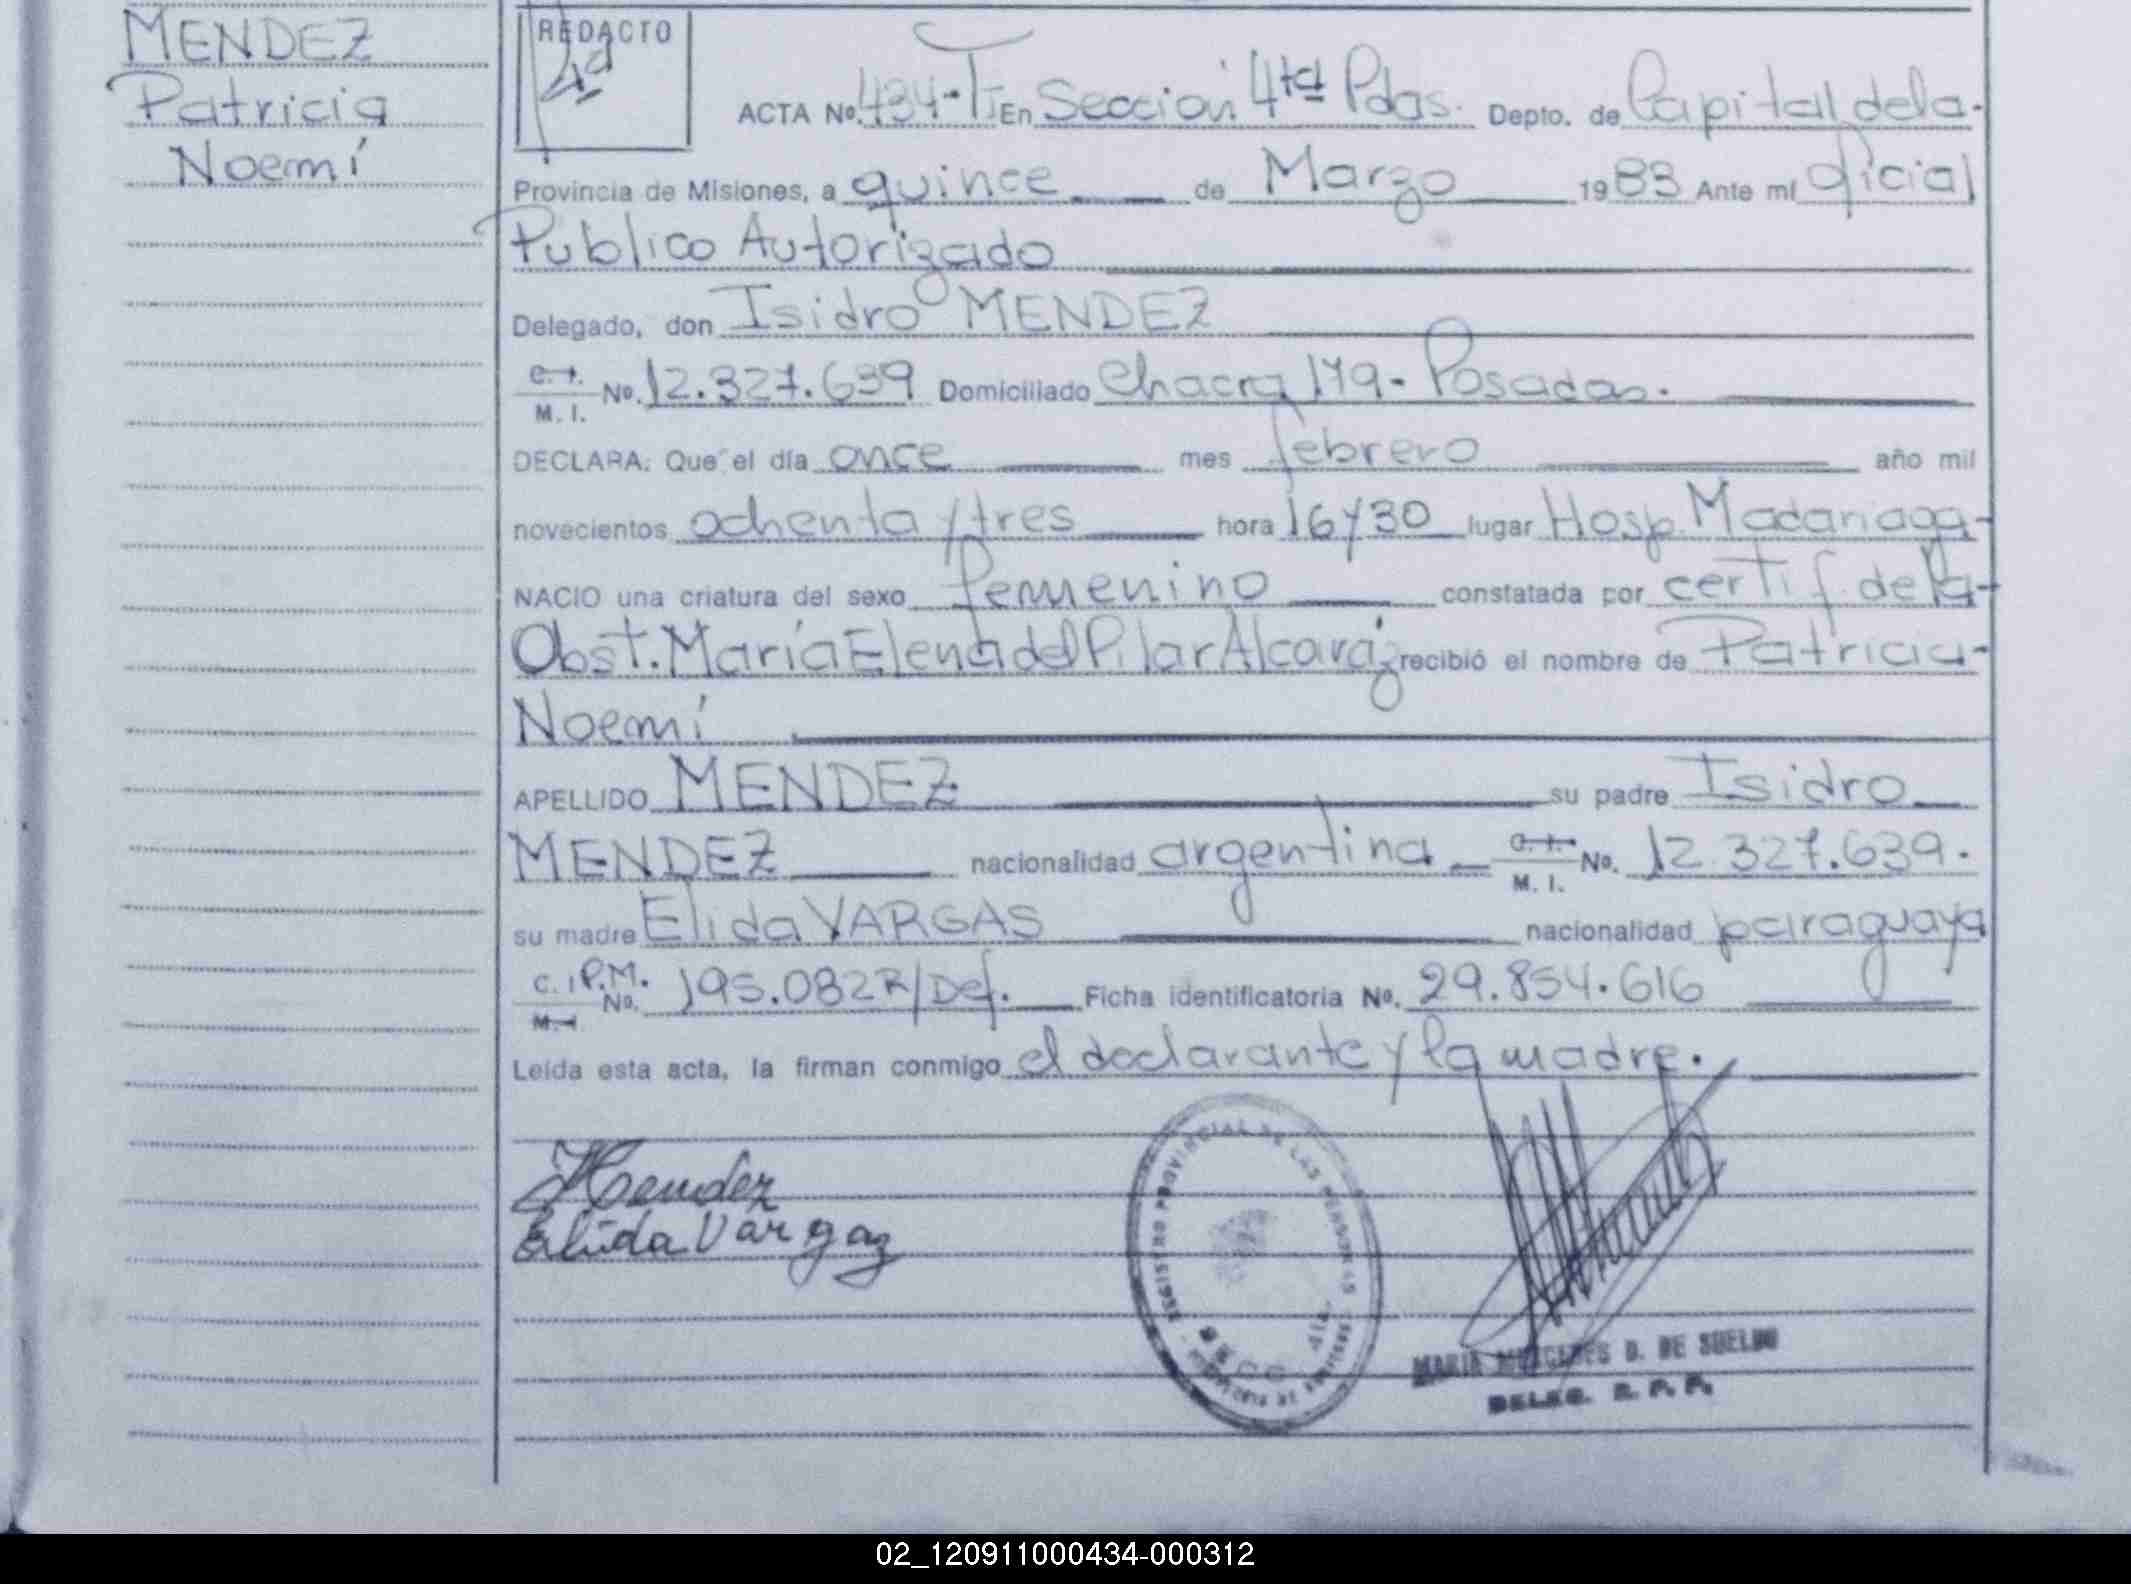 MENDEZ
Patricia
Noemí
REDACTO
ACTA No. 434-T I En Seccion 4ta Pdas. Depto. de Capital dela-
Provincia de Misiones, a quince de Marzo 1983 Ante mí oficial
Publico Autorizado
Delegado, don Isidro MENDEZ
C. I. M. I. No. 12.327.639 Domiciliado Chacra 179- Posadas.
DECLARA: Que el día once mes febrero año mil
novecientos ochenta y tres hora 16 y 30 lugar Hosp. Madariaga-
NACIO una criatura del sexo femenino constatada por certif. de la-
Obst. María Elena del Pilar Alcaráz recibió el nombre de Patricia-
Noemí
APELLIDO MENDEZ su padre Isidro
MENDEZ nacionalidad argentina C. I. M. I. No. 12.327.639.
su madre Elida VARGAS nacionalidad paraguaya
C. I. P.M. M. I. No. 195.082 R/Def. Ficha identificatoria No. 29.854.616
Leída esta acta, la firman conmigo el declarante y la madre.
Mendez
Elida Vargaz
REGISTRO PROVINCIAL DE LAS PERSONAS
MARIA MERCEDES D. DE SUELDO
DELEG. R. P. P.
02_120911000434-000312